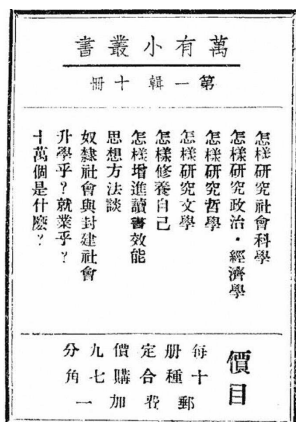 萬有小叢書
第一輯十冊
怎樣研究社會科學
怎樣研究政治・經濟學
怎樣研究哲學
怎樣研究文學
怎樣修養自己
怎樣增進讀書效能
思想方法談
奴隸社會與封建社會
升學乎？就業乎？
十萬個是什麽？
價目
每册定價九分
十種合購七角
郵費加一